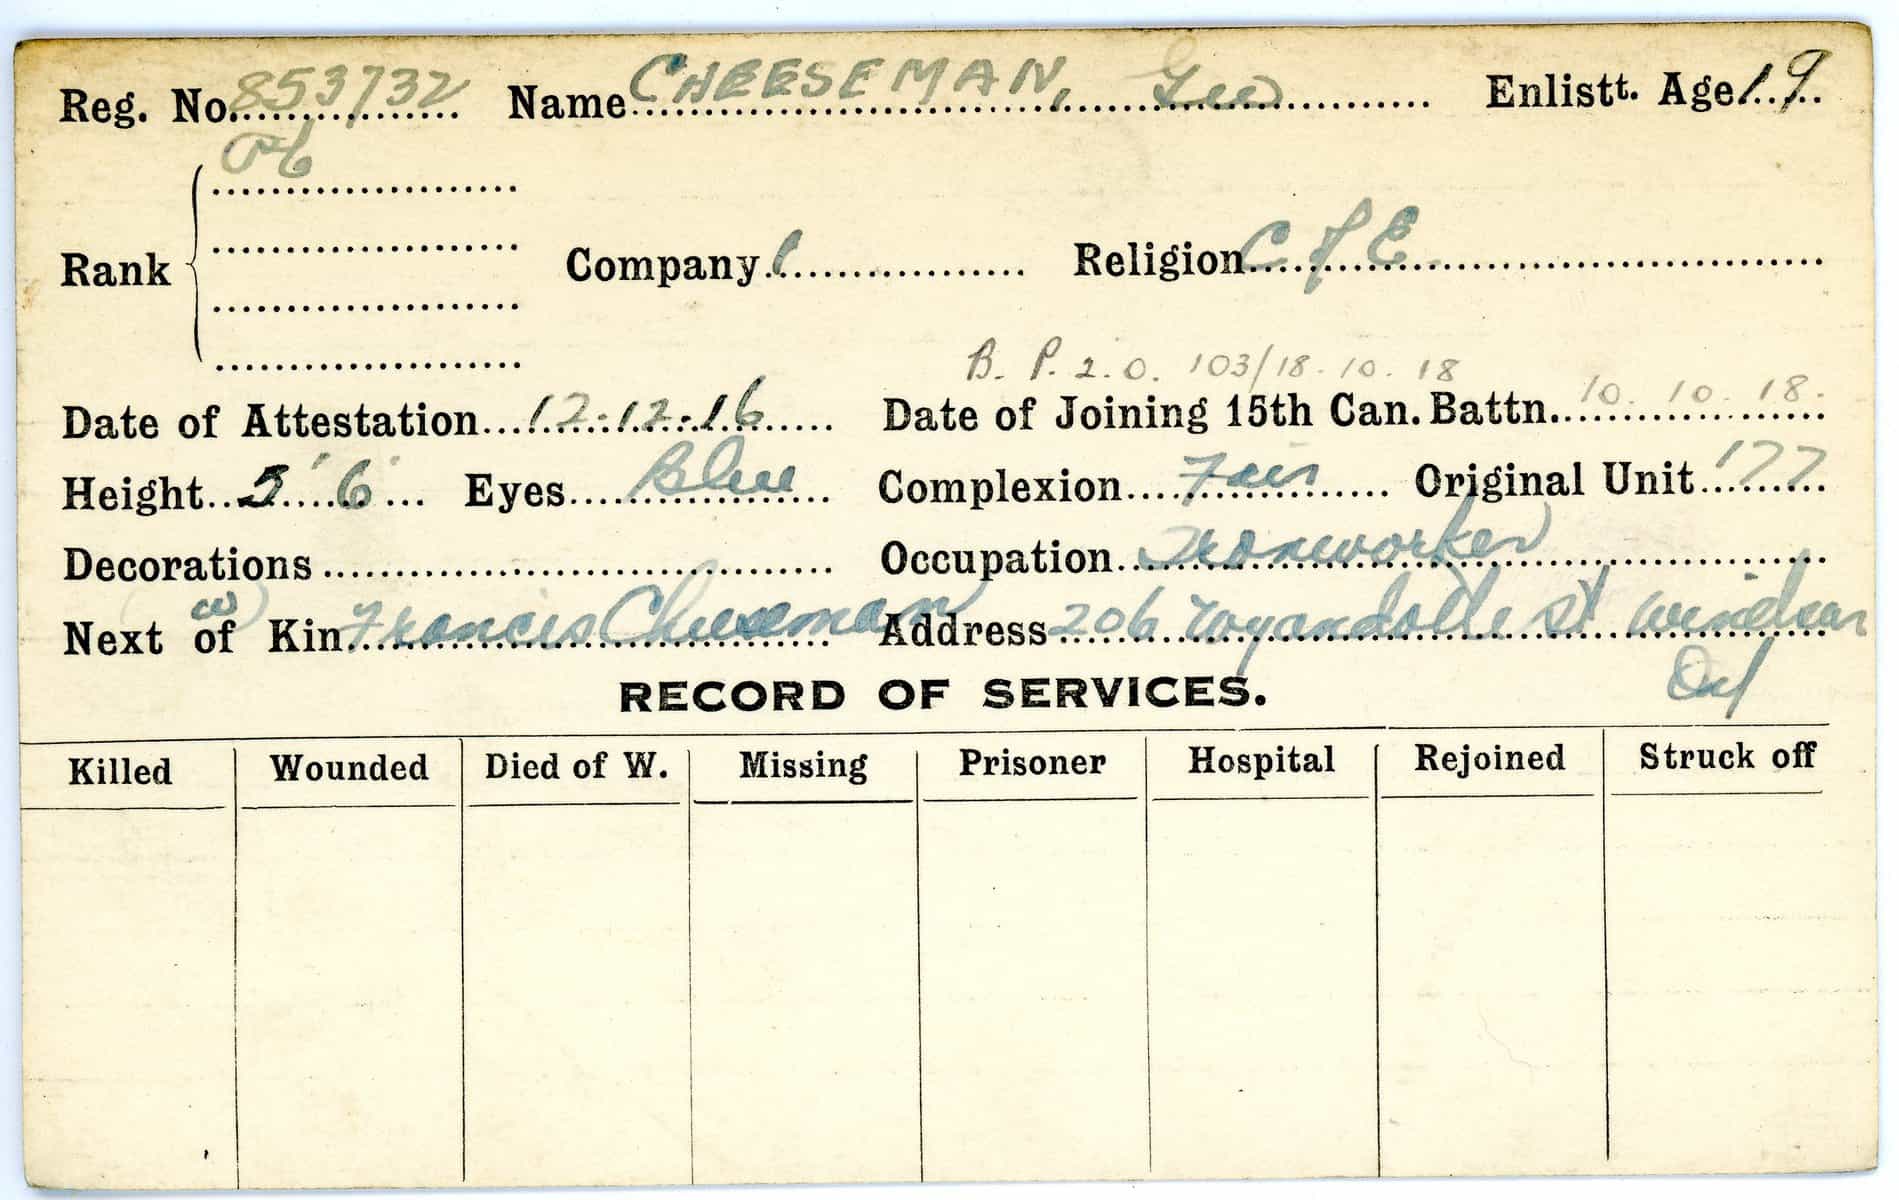 Reg. No. 853732 Name CHEESEMAN, Geo Enlistt. Age 19
Pte
Rank Company 1 Religion C of E
B. P. 2. O. 103/18.10.18
Date of Attestation 12.12.16 Date of Joining 15th Can. Battn. 10.10.18.
Height 5' 6" Eyes Blue Complexion Fair Original Unit 177
Decorations Occupation Ironworker
(w)
Next of Kin Francis Cheeseman Address 206 Wyandotte St Windsor
Ont
RECORD OF SERVICES.
Killed Wounded Died of W. Missing Prisoner Hospital Rejoined Struck off